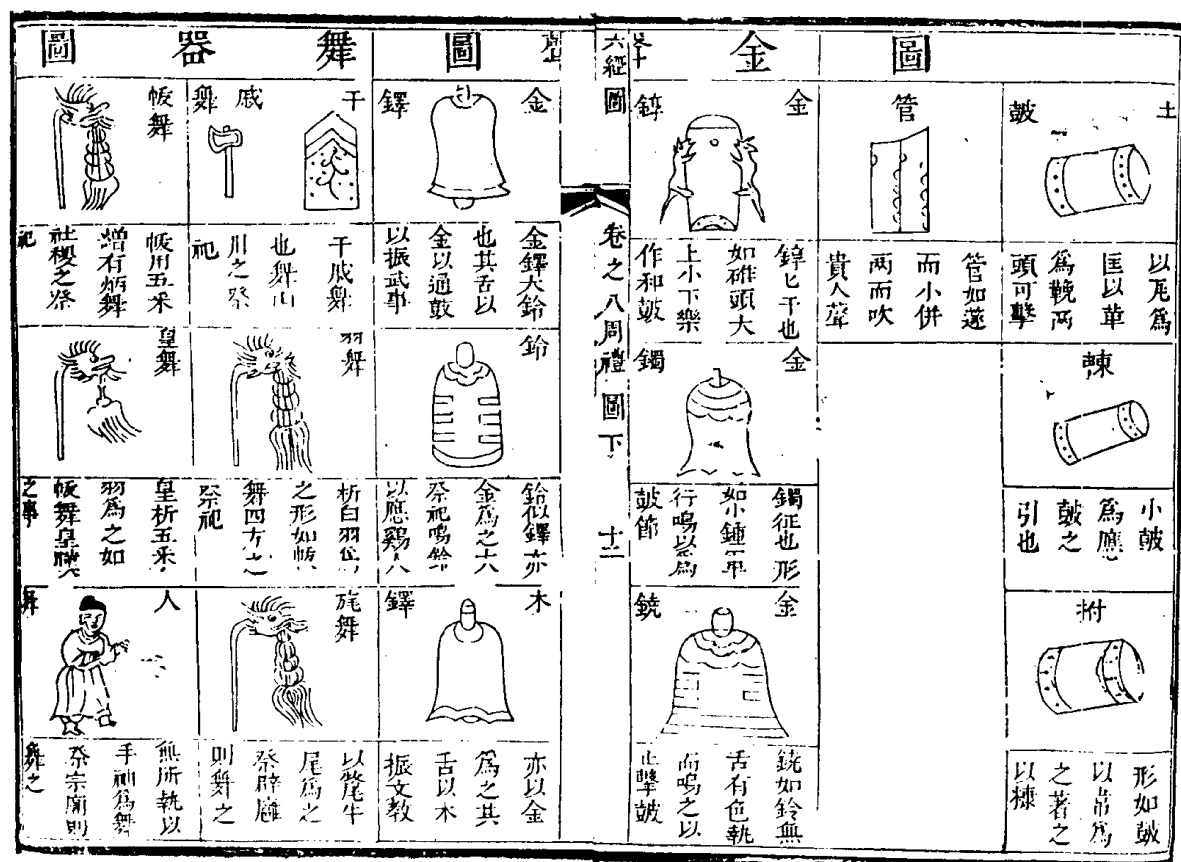 圖
土鼓
以瓦為
匡以革
為鞔兩
頭可擊
朄
小鼓
為應
鼓之
引也
拊
形如鼓
以韋為
之著之
以糠
管
管如篴
而小併
兩而吹
貴人聲
金
金錞
錞亐于也
如碓頭大
上小下樂
作和鼓
金鐲
鐲征也形
如小鍾軍
行鳴以為
鼓節
金鐃
鐃如鈴無
舌有秉執
而鳴之以
止擊鼓
六經圖
卷之八周禮圖下
十二
圖
金鐸
金鐸大鈴
也其舌以
金以通鼓
以振武事
鈴
鈴似鐸亦
金為之大
祭祀鳴鈴
以應鷄人
木鐸
亦以金
為之其
舌以木
振文教
舞器圖
干戚舞
干戚舞
也舞山
川之祭
祀
羽舞
析白羽為
之形如帗
舞四方之
祭祀
旄舞
以氂牛
尾為之
祭辟廱
則舞之
帗舞
帗用五采
繒有炳舞
社稷之祭
祀
皇舞
皇析五采
羽為之如
帗舞
之事
人舞
無所執以
手袖為舞
祭宗廟則
舞之